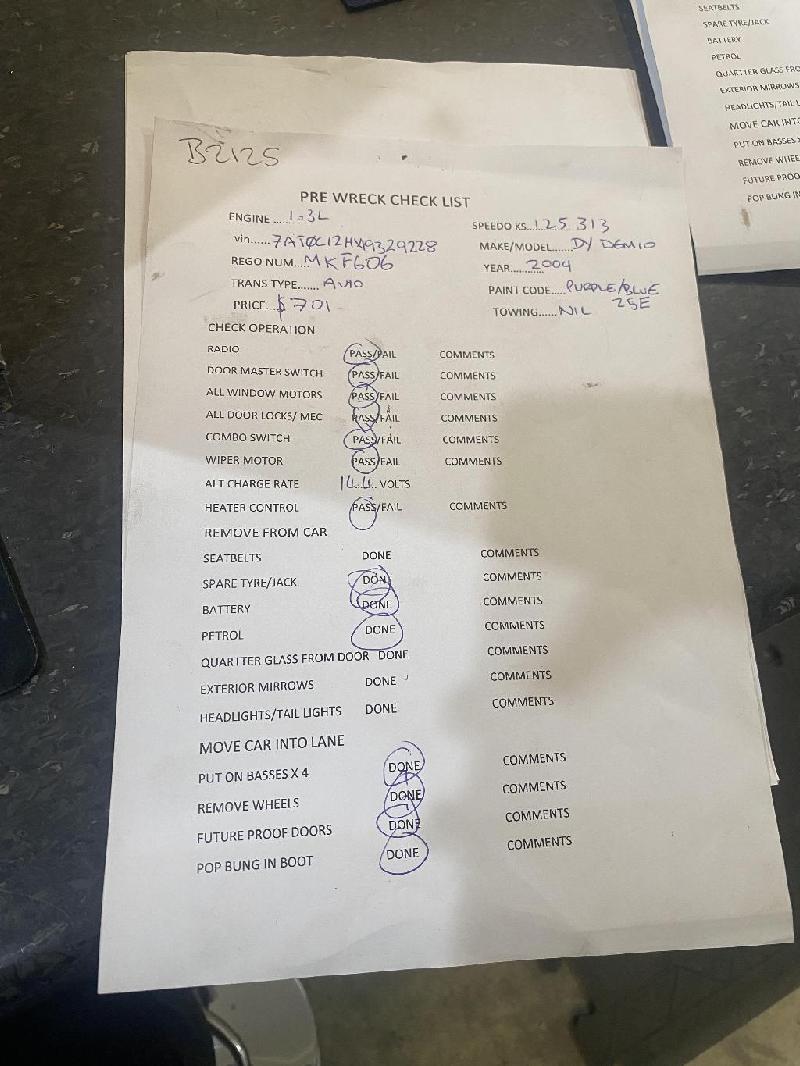 B2125
PRE WRECK CHECK LIST
ENGINE .... 1.3L
SPEEDO KS...125 313
vin......
MAKE/MODEL......DY DEMIO
REGO NUM...MKF606
YEAR..........2004
TRANS TYPE.......AUTO
PAINT CODE....PURPLE/BLUE
PRICE...$701
25E
TOWING......NIL
CHECK OPERATION
RADIO PASS/FAIL COMMENTS
DOOR MASTER SWITCH PASS/FAIL COMMENTS
ALL WINDOW MOTORS PASS/FAIL COMMENTS
ALL DOOR LOCKS/ MEC PASS/FAIL COMMENTS
COMBO SWITCH PASS/FAIL COMMENTS
WIPER MOTOR PASS/FAIL COMMENTS
ALT CHARGE RATE 14.4 VOLTS
HEATER CONTROL PASS/FAIL COMMENTS
REMOVE FROM CAR
SEATBELTS DONE COMMENTS
SPARE TYRE/JACK DONE COMMENTS
BATTERY DONE COMMENTS
PETROL DONE COMMENTS
QUARTTER GLASS FROM DOOR DONE COMMENTS
EXTERIOR MIRROWS DONE COMMENTS
HEADLIGHTS/TAIL LIGHTS DONE COMMENTS
MOVE CAR INTO LANE
PUT ON BASSES X 4 DONE COMMENTS
REMOVE WHEELS DONE COMMENTS
FUTURE PROOF DOORS DONE COMMENTS
POP BUNG IN BOOT DONE COMMENTS
SEATBELTS
SPARE TYRE/JACK
BATTERY
PETROL
QUARTTER GLASS FRO
EXTERIOR MIRROWS
HEADLIGHTS/TAIL L
MOVE CAR INTO
PUT ON BASSES X
REMOVE WHEE
FUTURE PROO
POP BUNG IN